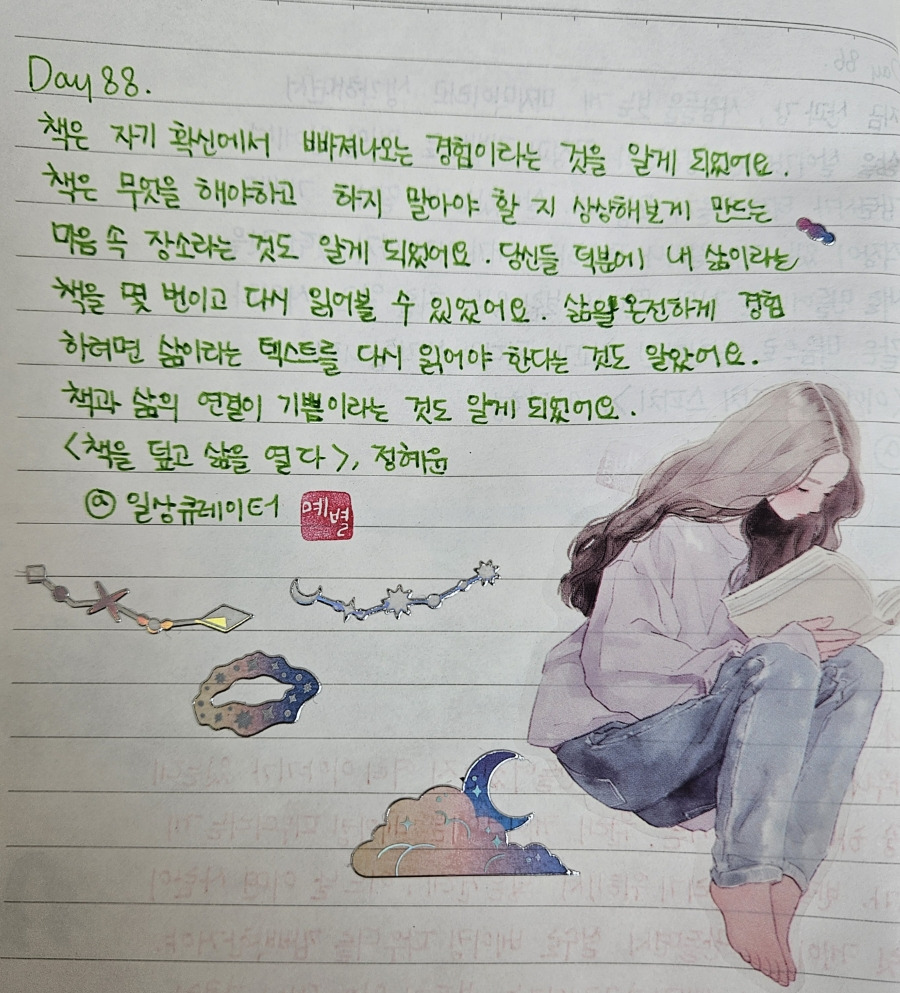 Day 88.
책은 자기 확신에서 빠져나오는 경험이라는 것을 알게 되었어요.
책은 무엇을 해야하고 하지 말아야 할 지 상상해보게 만드는
마음 속 장소라는 것도 알게 되었어요. 당신들 덕분에 내 삶이라는
책을 몇 번이고 다시 읽어볼 수 있었어요. 삶을 온전하게 경험
하려면 삶이라는 텍스트를 다시 읽어야 한다는 것도 알았어요.
책과 삶의 연결이 기쁨이라는 것도 알게 되었어요.
<책을 덮고 삶을 열다>, 정혜윤
@ 일상큐레이터 예별